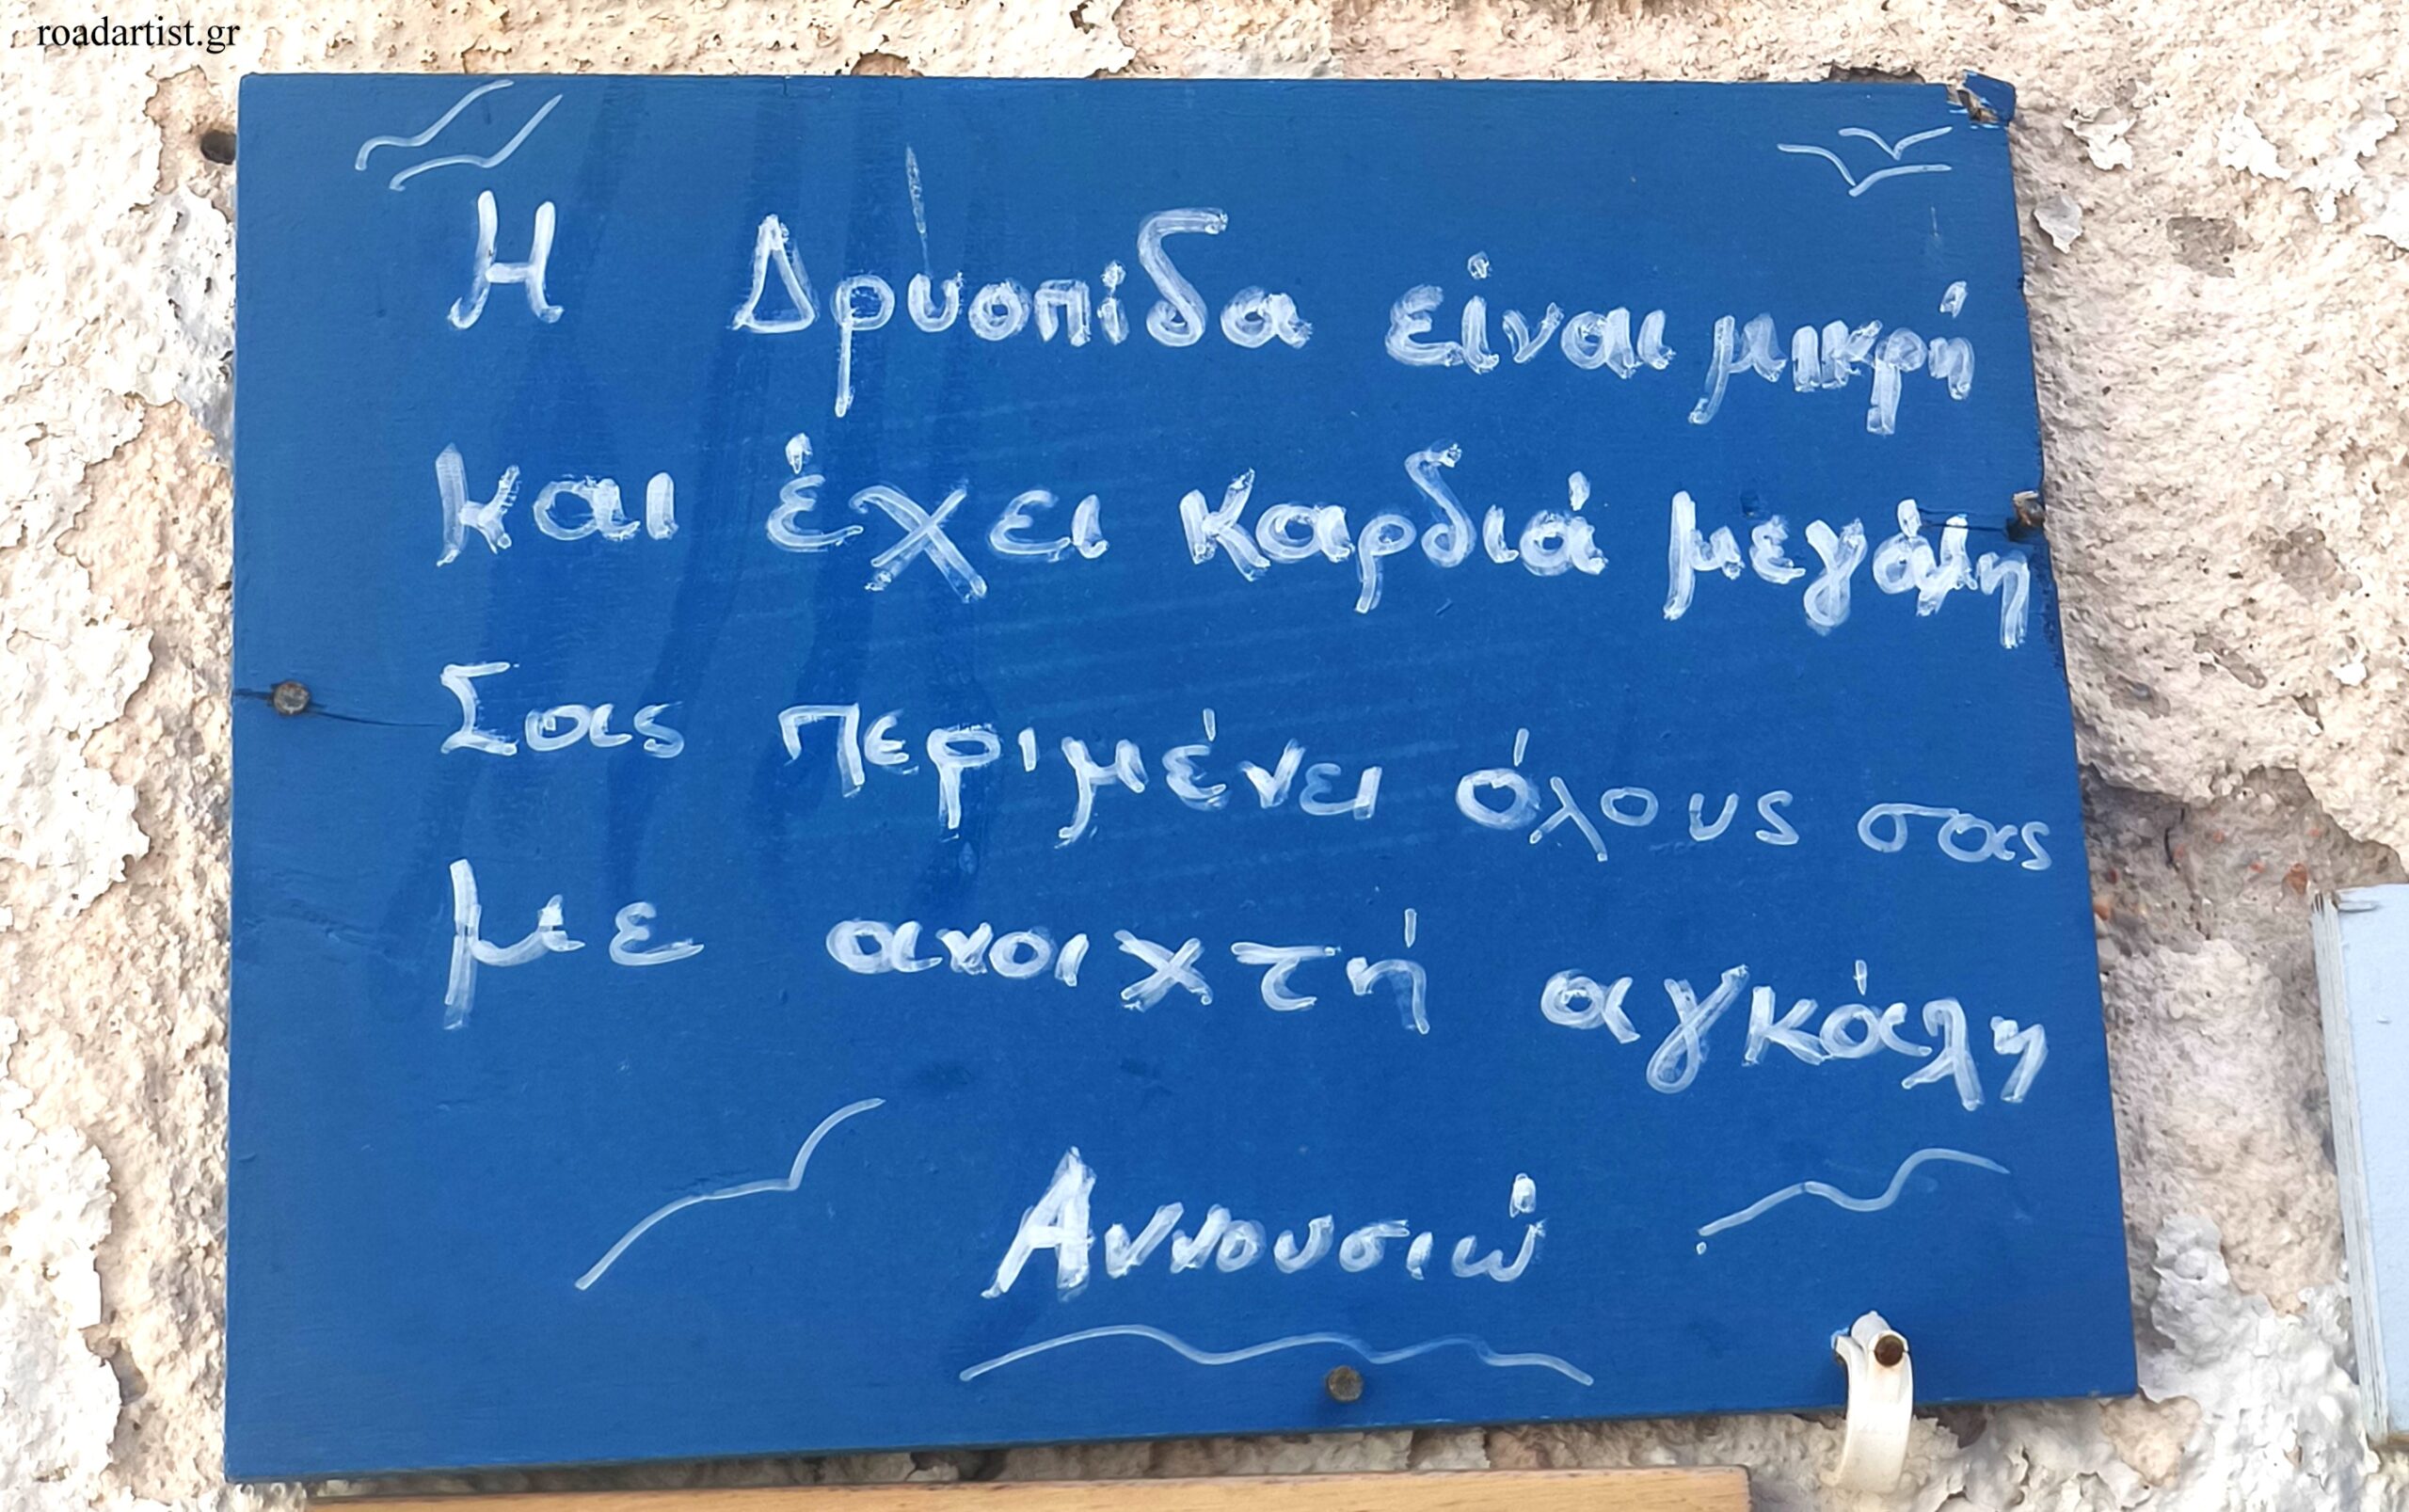 roadartist.gr
Η Δρυοπίδα είναι μικρή
και έχει καρδιά μεγάλη
Σας περιμένει όλους σας
με ανοιχτή αγκάλη
Αννουσιώ